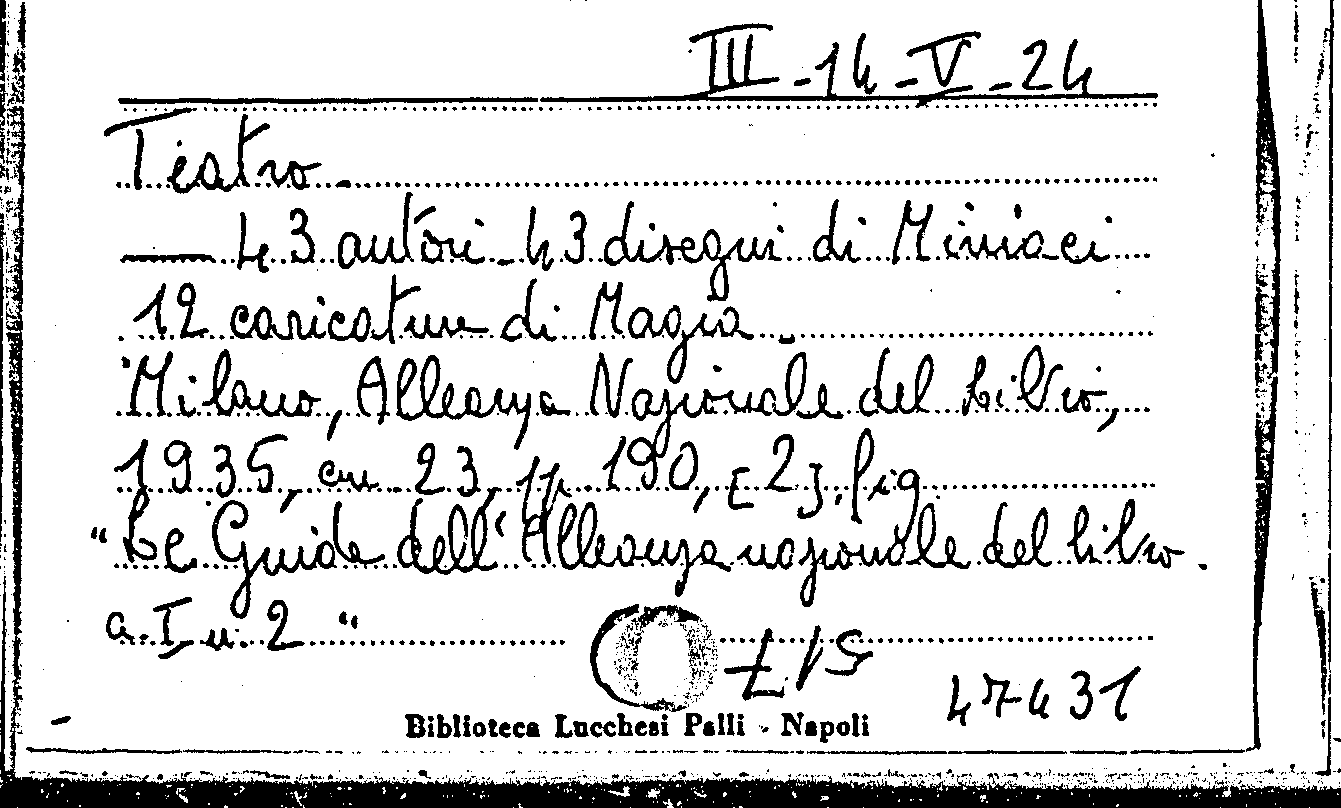 III-14-V-24
Teatro -
—— 43 autori - 43 disegni di Miniaci
12 caricature di Magia -
Milano, Alleanza Nazionale del Libro,
1935, cm 23, pp. 190, [2]. fig
"Le Guide dell'Alleanza nazionale del libro.
a. I n. 2"
47431
Biblioteca Lucchesi Palli - Napoli